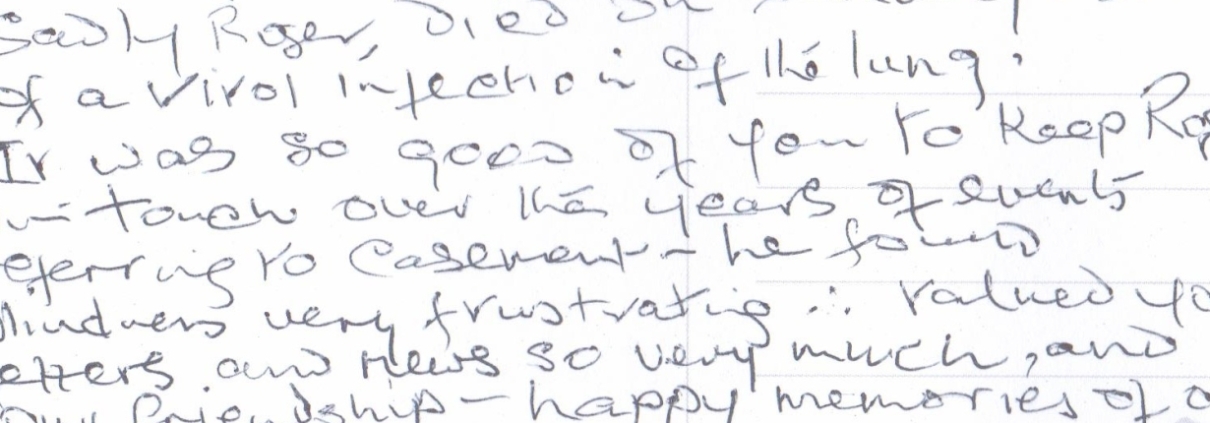 Sadly Roger, Died on
of a viral infection of the lung.
It was so good of you to keep
in touch over the years of events
referring to Casement - he found
blindness very frustrating ∴ valued
letters and news so very much, and
your friendship - happy memories of